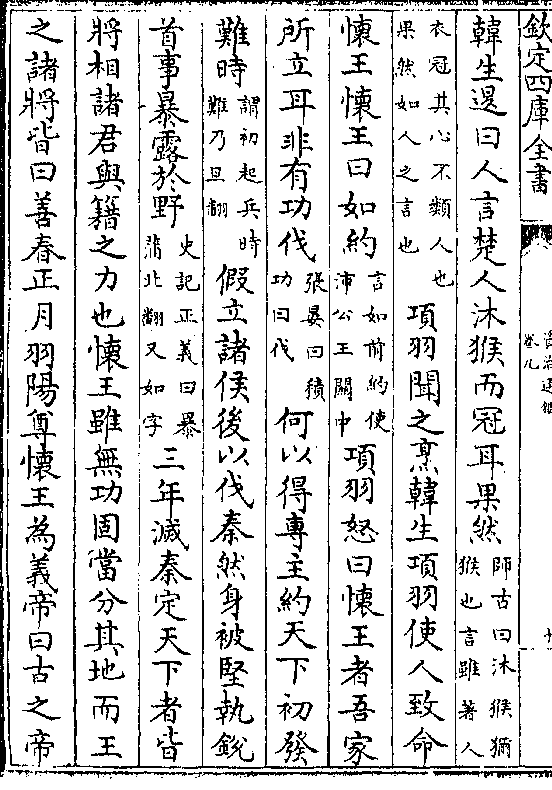 欽定四庫全書
卷九
韓生退曰人言楚人沐猴而冠耳果然師古曰沐猴獼猴也言雖著人
衣冠其心不類人也果然如人之言也項羽聞之烹韓生項羽使人致命
懷王懷王曰如約言如前約使沛公王關中項羽怒曰懷王者吾家
所立耳非有功伐張晏曰積功曰伐何以得專主約天下初發
難時謂初起兵時難乃旦翻假立諸侯後以伐秦然身被堅執銳
首事暴露於野史記正義曰暴蒲北翻又如字三年滅秦定天下者皆
將相諸君與籍之力也懷王雖無功固當分其地而王
之諸將皆曰善春正月羽陽尊懷王為義帝曰古之帝